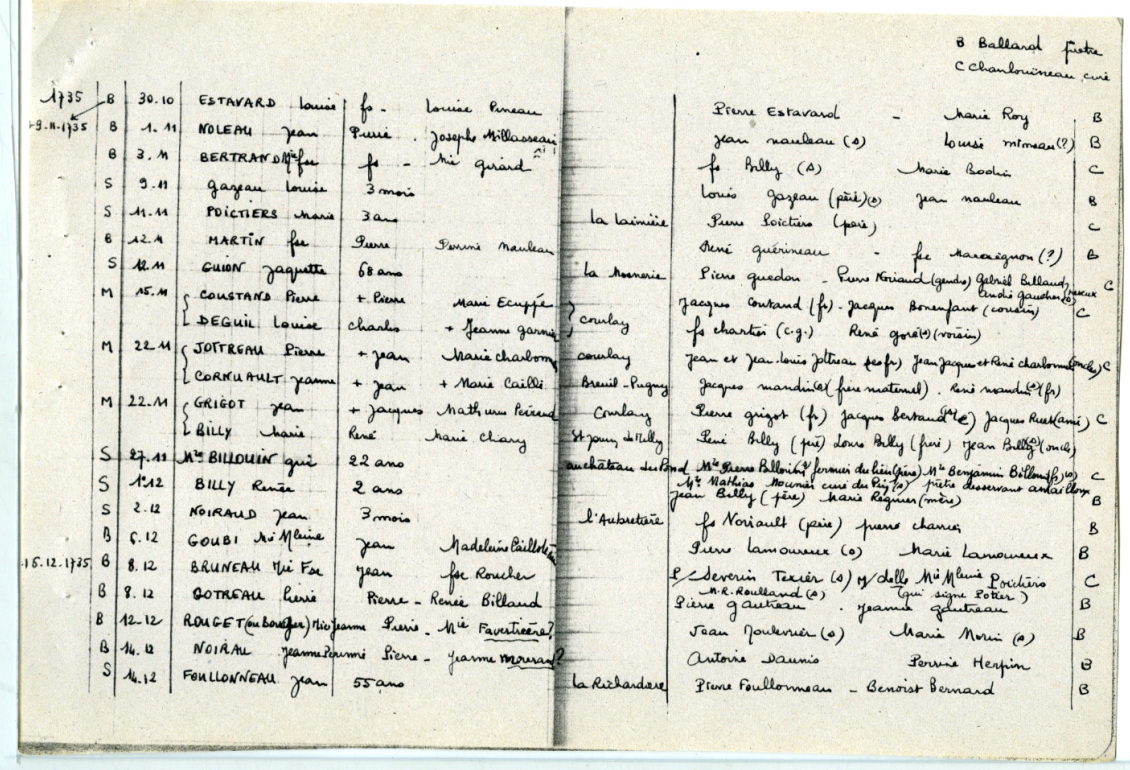 B Ballard prêtre
C Chanlouineau, curé
1735 B 30.10 ESTAVARD Louise fs - Louise Pineau Pierre Estavard - Marie Roy B
B 1.11 NOLEAU Jean Pierre . Josephe jean nauleau (s) Louise mimeau(?) B
B 3.11 BERTRAND Mie fse fs - Mie girard fs Billy (s) Marie Bodin C
S 9.11 gazeau Louise 3 mois Louis gazeau (père)(s) jean nauleau B
S 11.11 POICTIERS Marie 3 ans La Lainière Pierre Poictiers (père) C
B 12.11 MARTIN fse Pierre Perrine nauleau René guérineau - fse (?) B
S 12.11 GUION Jaquette 68 ans La Mosnerie Pierre guedon - Pierre Noriaud (gendre) Gabriel Billaud, André gaudin neveux C
M 15.11 COUSTAND Pierre + Pierre Marie Ecuppée Jacques Coutand (fs) - Jacques Bonenfant (cousin) C
DEGUIL Louise Charles + Jeanne garnier courlay fs chartier (c.g.) René goré(s) (voisin)
M 22.11 JOTTREAU Pierre + Jean Marie charbonn courlay Jean et Jean-Louis jottreau ses fs) Jean Jacques et René charbonn (oncles) C
CORNUAULT jeanne + Jean + Marie Cailli Breuil-Pugny Jacques mandin(s) (frère maternel) . René mandin(s) (fs)
M 22.11 GRIGOT Jean + Jacques Mathurine Courlay Pierre grigot (fs) Jacques Bertaud Jacques Ruet (ami) C
BILLY Marie René Marie Chary St Jouin de Milly René Billy (père) Louis Billy (frère) Jean Billy(s) (oncle)
S 27.11 Mre BILLOUIN gui 22 ans au château du Fond Mre Pierre Billouin fermier du lieu (père) Mre Benjamin Billouin (fs) (s) C
Mre Mathias Mounier curé du Puy (s) prêtre desservant amailloux
S 1.12 BILLY Renée 2 ans Jean Billy (père) Marie Régnier (mère) B
S 2.12 NOIRAUD Jean 3 mois l'Aubretière fs Noriault (père) pierre charrier B
B 6.12 GOUBI Mie Mleine Jean Madeleine Pierre Lamoureux (s) Marie Lamoureux B
15.12.1735 B 8.12 BRUNEAU Mie Fse Jean fse Roucher P/ Severin Texier (s) M/ delle Mie Mleine Poictiers C
M.R. Roulland (s) (qui signe Potier)
B 8.12 GOTREAU Pierre Pierre - Renée Billaud Pierre gautreau . Jeanne gautreau B
B 12.12 ROUGET Mie Jeanne Pierre - Mie Favestrière? Jean (s) Marie Morin (s) B
B 14.12 NOIRAU Jeanne Perrinne Pierre - Jeanne moreau? Antoine Daunis Perrine Herpin B
S 14.12 FOULLONNEAU Jean 55 ans La Richardière Pierre Foullonneau - Benoist Bernard B